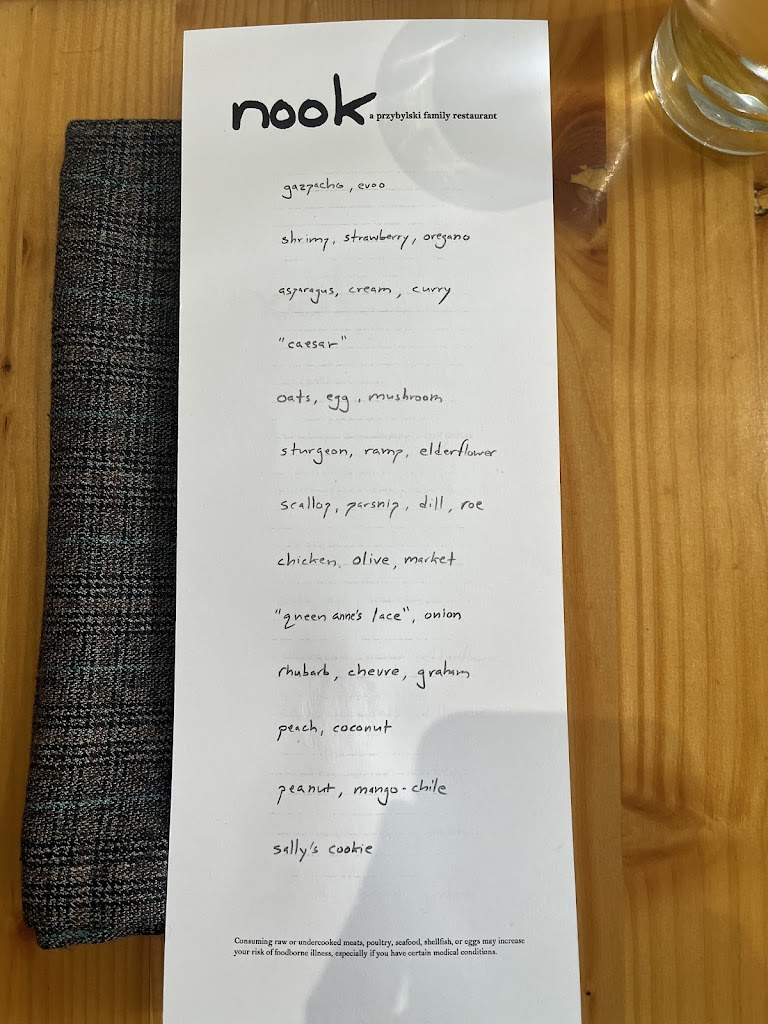 nook
a przybylski family restaurant
gazpacho, evoo
shrimp, strawberry, oregano
asparagus, cream, curry
"caesar"
oats, egg, mushroom
sturgeon, ramp, elderflower
scallop, parsnip, dill, roe
chicken, olive, market
"queen anne's lace", onion
rhubarb, chevre, graham
peach, coconut
peanut, mango-chile
sally's cookie
Consuming raw or undercooked meats, poultry, seafood, shellfish, or eggs may increase
your risk of foodborne illness, especially if you have certain medical conditions.